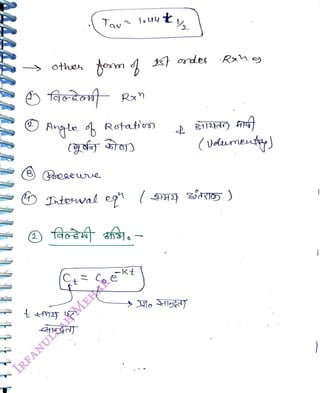 Tav = 1.44 t 1/2
→ Other form of 1st order Rxn
① विल्हेल्मी Rxn
② Angle of Rotation & आयतन मापी
(घूर्णन कोण) (Volumentry)
③ Pressure
④ Interval eqn ( समय अंतराल )
① विल्हेल्मी अभि. –
Ct = C₀ e^-Kt
t समय पर → प्रा० सान्द्रता
सान्द्रता
IRFANULLAH MEHAR